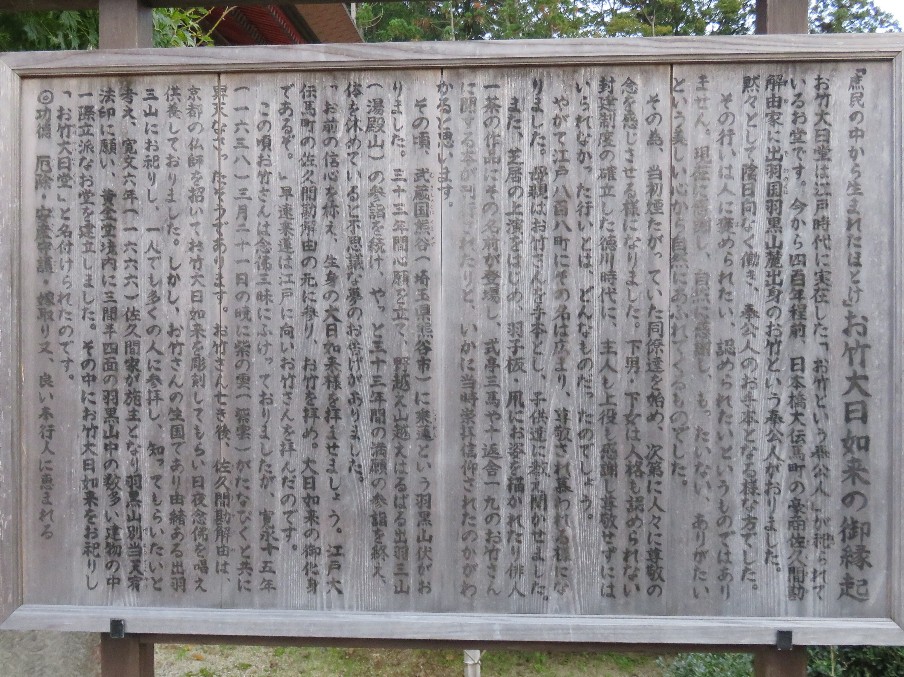 『庶民の中から生まれたほとけ』お竹大日如来の御縁起
お竹大日堂は江戸時代に実在した「お竹という奉公人」が祀られて
いるお堂です。今から四百年程前、日本橋大伝馬町の豪商佐久間勘
解由家に出羽国羽黒山麓出身のお竹という奉公人がおりました。
黙々として陰日向なく働き、奉公人のお手本となる様な方でした。
その行いは、人に褒められたい、認められたいというものではあり
ません。現在に感謝し、自然に感謝し、もったいない、ありがたい
という美しい心から自然にあふれてくるものでした。
その為、当初煙たがっていた同僚達を始め、次第に人々に尊敬の
念を感じさせる様になりました。下男・下女は人格も認められない
封建制度の確立した徳川時代に、主人も上役も感謝し尊敬せずには
いられなかった行いとは、どんなものだったのでしょう。
やがて江戸八百八町にその名は広まり、尊敬され慕われる様にな
りました。母親はお竹さんを手本とし、子供達に教え聞かせました。
また、芝居の上演をはじめ、羽子板・凧にお姿を描かれたり、俳人
一茶の作品にその名前が登場し、式亭三馬や十返舎一九のお竹さん
に関する本が刊行されたりと、いかに当時崇拝信仰されたのかがわ
かると思います。
その頃、武蔵国熊谷(埼玉県熊谷市)に乗蓮という羽黒山伏がお
りました。三十三年間心願を立て、野越え山越えはるばる出羽三山
(湯殿山)の参詣を続け、やっと三十三年間の満願の参詣を終え、
宿を休めていると不思議な夢のお告げがありました。
「お前の信心を称え、生身の大日如来様を拝ませましょう。江戸大
伝馬町の佐久間勘解由の元に参り、お竹を拝め。大日如来の御化身
であるぞ。」早速乗蓮は江戸に向いお竹さんを拝んだのです。
この頃お竹さんは念佛三昧にふけっておりましたが、寛永十五年
(一六三八)三月二十一日の晩に紫の雲(紫雲)がたなびくと共に
昇天なさったそうでございます。お竹さん亡き後、佐久間勘解由は、
京都の仏師を招いて於竹大日如来を彫刻してもらい日夜念佛を唱え
供養しておりました。しかし、お竹さんの生国であり由緒ある出羽
三山にお祀りし、一人でも多くの人に参拝し、知ってもらいたいと
考え、寛文六年(一六六六)佐久間家が施主となり羽黒山別当天宥
法印に願い、黄金堂境内に三間半四面の羽黒山中の数多い建物の中
一際立派なお堂を建立しました。その中にお竹大日如来をお祀りし
「お竹大日堂」と名付けられたのです。
◎功徳 厄除・家運守護・嫁取り又、良い奉行人に恵まれる